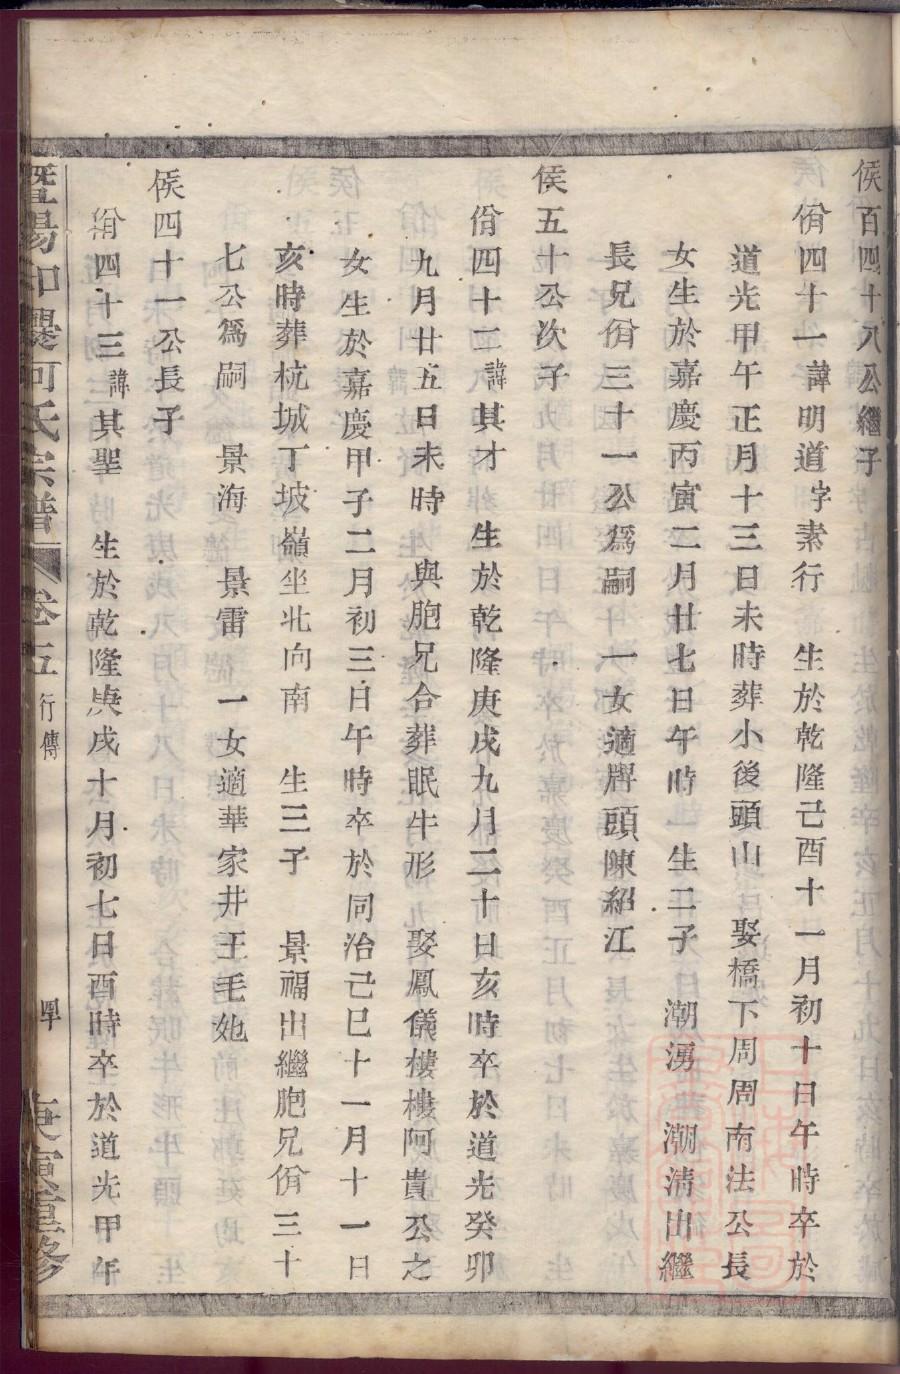 矦百四十八公繼子
佾四十一諱明道字素行 生於乾隆己酉十一月初十日午時卒於
道光甲午正月十三日未時葬小後頭山 娶橋下周周南法公長
女生於嘉慶丙寅二月廿七日午時 生二子 潮湧 潮淸出繼
長兄佾三十一公爲嗣 一女適牌頭陳紹江
矦五十公次子
佾四十二諱其才 生於乾隆庚戌九月二十日亥時卒於道光癸卯
九月廿五日未時 與胞兄合葬眠牛形 娶鳳儀樓樓阿貴公之
女生於嘉慶甲子二月初三日午時卒於同治己巳十一月十一日
亥時葬杭城丁坡嶺坐北向南 生三子 景福出繼胞兄佾三十
七公爲嗣 景海 景雷 一女適華家井王毛她
矦四十一公長子
佾四十三諱其聖 生於乾隆庚戌十月初七日酉時卒於道光甲午
暨陽 何氏宗譜 卷五 行傳 庚寅重修